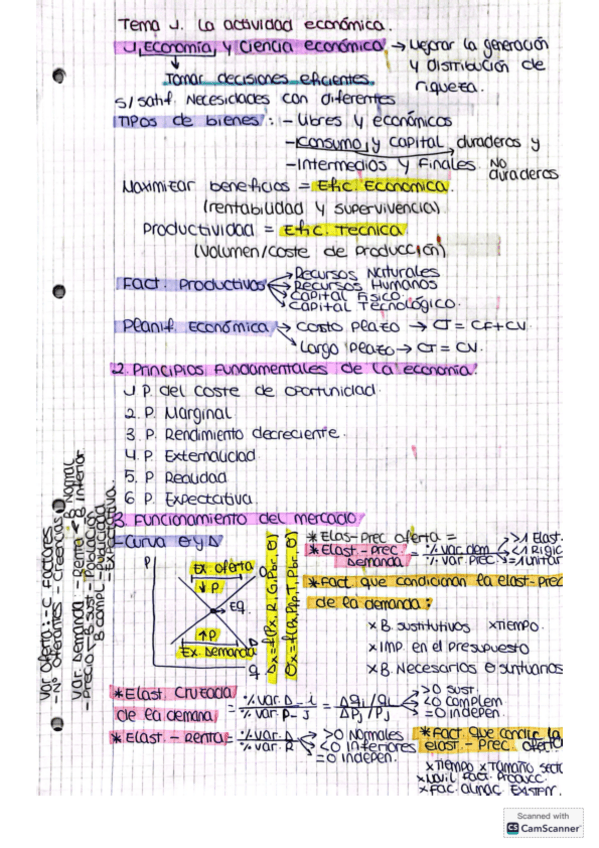 Tema 1. La actividad económica.
1. Economía y Ciencia económica → Mejorar la generación
y distribución de
riqueza.
Tomar decisiones eficientes.
s/satif. Necesidades con diferentes
TIPOS de bienes: - Libres y económicos
- Consumo y capital, duraderos y
NO
duraderos
- Intermedios y Finales.
Maximizar beneficios = Efic. Economica.
(rentabilidad y supervivencia)
Productividad = Efic. Tecnica
(Volumen/Coste de producción)
Fact. Productivos → Recursos Naturales
→ Recursos Humanos
→ Capital Físico
→ Capital Tecnológico.
Planif. Económica → Corto Plazo → CT = CF+CV.
Largo Plazo → CT = CV.
2. Principios Fundamentales de la economia.
1 P. del coste de oportunidad.
2. P. Marginal
3. P. Rendimiento decreciente.
4. P. Externalidad
5. P. Realidad
6 P. Expectativa.
3. Funcionamiento del mercado
- Curva O y D
P
Ex. Oferta
↓P
Eq.
↑P
Ex. Demanda
O
D
q
Dx=f(Px, R, G, Pbr, θ)
Var. Oferta: - C. Factores
- Nº Oferantes - Creencias
Var. Demanda: - Renta < B. Normal
B. Inferior
- Precio < B. sust - Población
B. compl - Publicidad
- Expectativa.
* Elas-Prec oferta =
* Elast - Prec Demanda = % var. dem / % var. Prec.
>1 Elast.
<1 Rigid
=1 unitar
* Fact. que condicionan la elast-prec
de la demanda:
x B. sustitutivos x Tiempo.
x IMP. en el Presupuesto
x B. Necesarios o suntuarios
* Elast Cruzada
de la demana = % var. D - i / % var. P - j = Δqi/qi / ΔPj/Pj
>0 sust
<0 complem
=0 indepen.
* Elast. - Renta = % var. D / % var. R
>0 Normales
<0 Inferiores
=0 indepen.
* Fact. que condic la
elast. - Prec. oferta
x Tiempo x Tamaño sect
x Movil Fact. Producc.
x Fac. almac Existen.
Scanned with
CS CamScanner